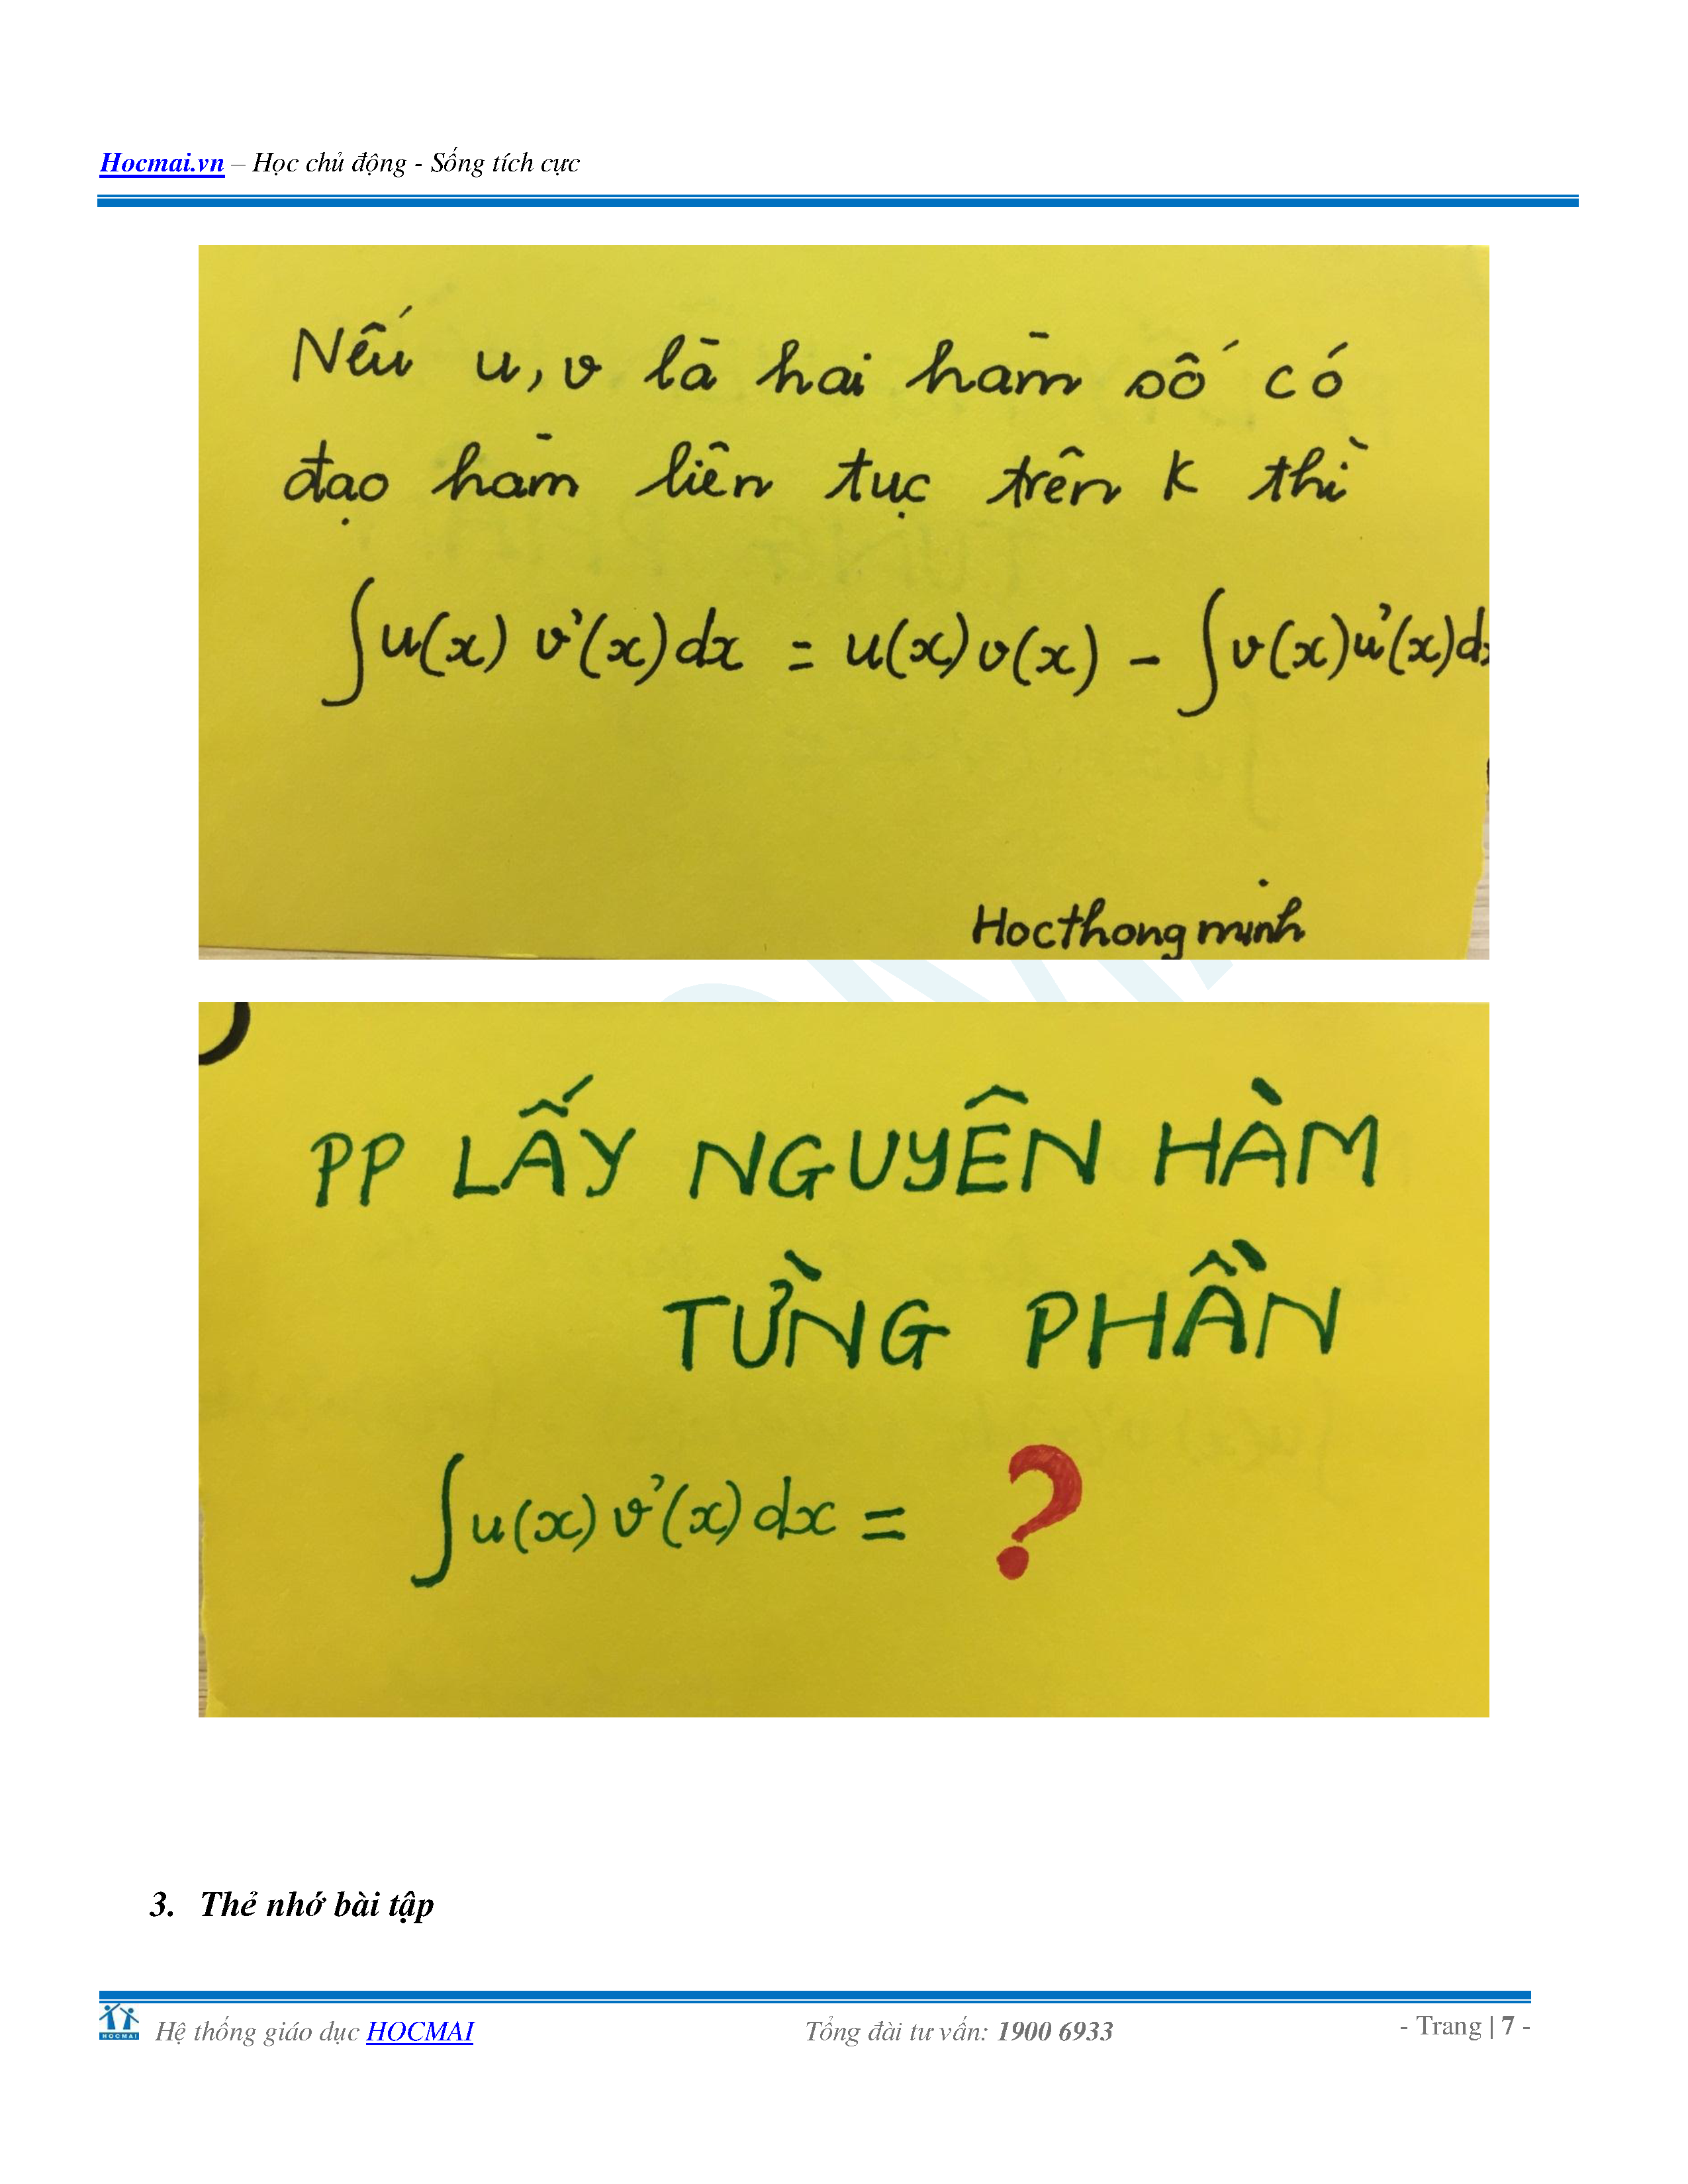 Hocmai.vn – Học chủ động - Sống tích cực
Nếu u, v là hai hàm số có
đạo hàm liên tục trên K thì
∫u(x) v'(x)dx = u(x)v(x) - ∫v(x)u'(x)dx
Hocthongminh
PP LẤY NGUYÊN HÀM
TỪNG PHẦN
∫u(x)v'(x)dx = ?
3. Thẻ nhớ bài tập
HOCMAI
Hệ thống giáo dục HOCMAI Tổng đài tư vấn: 1900 6933 - Trang | 7 -